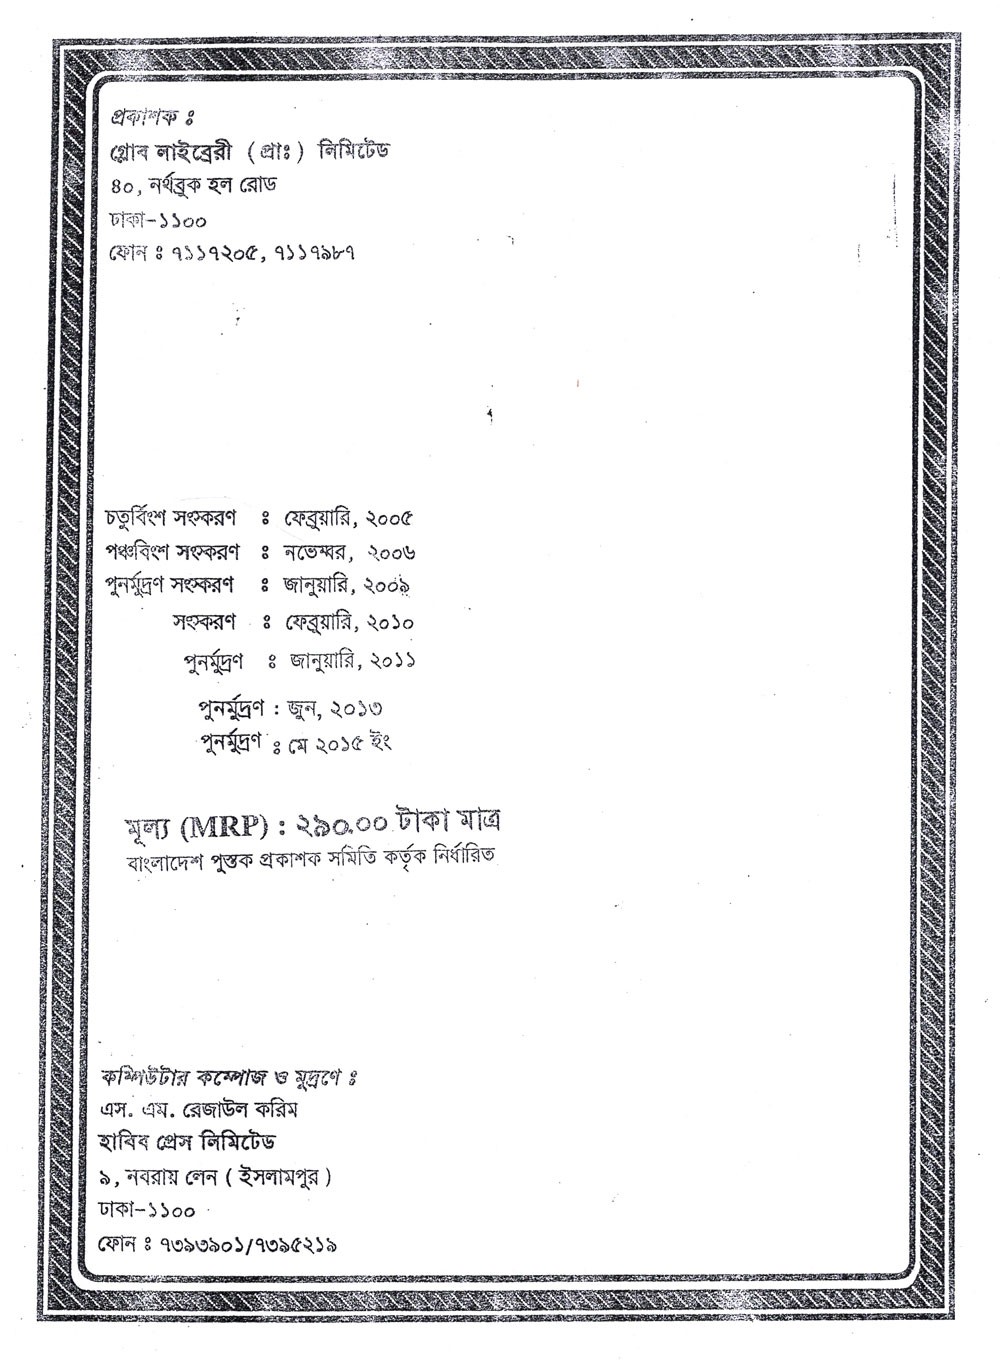 প্রকাশক ঃ
গ্লোব লাইব্রেরী ( প্রাঃ ) লিমিটেড
৪০, নর্থব্রুক হল রোড
ঢাকা-১১০০
ফোন ঃ ৭১১৭২০৫, ৭১১৭৯৮৭
চতুর্বিংশ সংস্করণ ঃ ফেব্রুয়ারি, ২০০৫
পঞ্চবিংশ সংস্করণ ঃ নভেম্বর, ২০০৬
পুনর্মুদ্রণ সংস্করণ ঃ জানুয়ারি, ২০০৯
সংস্করণ ঃ ফেব্রুয়ারি, ২০১০
পুনর্মুদ্রণ ঃ জানুয়ারি, ২০১১
পুনর্মুদ্রণ : জুন, ২০১৩
পুনর্মুদ্রণ ঃ মে ২০১৫ ইং
মূল্য (MRP) : ২৯০.০০ টাকা মাত্র
বাংলাদেশ পুস্তক প্রকাশক সমিতি কর্তৃক নির্ধারিত
কম্পিউটার কম্পোজ ও মুদ্রণে ঃ
এস. এম. রেজাউল করিম
হাবিব প্রেস লিমিটেড
৯, নবরায় লেন ( ইসলামপুর )
ঢাকা-১১০০
ফোন ঃ ৭৩৯৩৯০১/৭৩৯৫২১৯